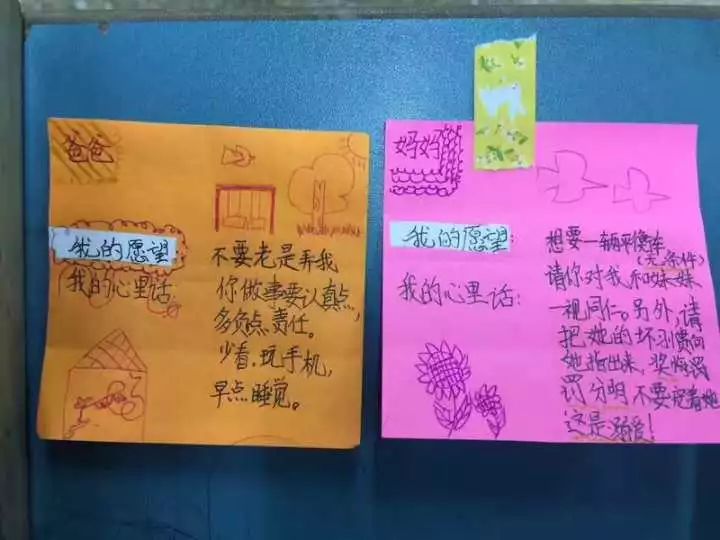 爸爸
我的愿望:
不要老是弄我
我的心里话:
你做事要认真点,
多负点责任。
少看.玩手机,
早点睡觉。
妈妈
我的愿望:
想要一辆平衡车
(无条件)
我的心里话:
请你对我和妹妹
一视同仁。另外,请
把她的坏习惯向
她指出来,奖
罚分明不要宠着她
这是溺爱!